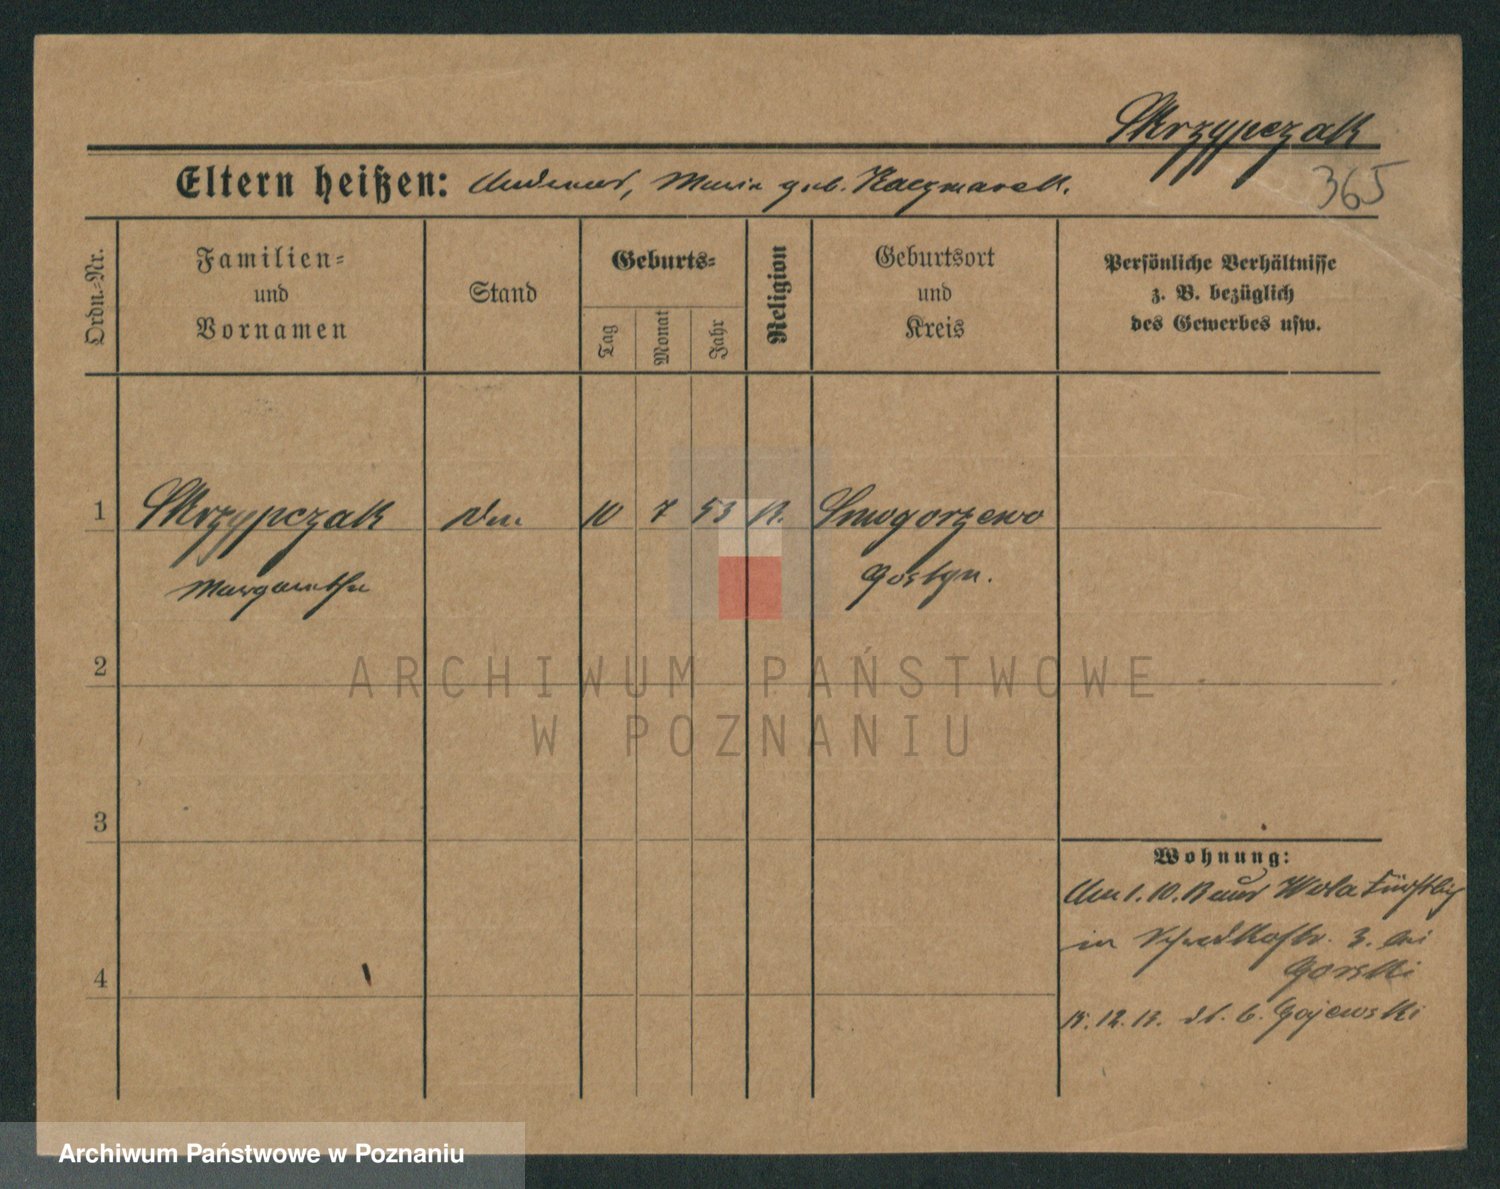 Skrzypczak
365
Eltern heißen: Andreas, Maria geb. Kaczmarek.
Ordn.-Nr.
Familien-
und
Vornamen
Stand
Geburts-
Tag
Monat
Jahr
Religion
Geburtsort
und
Kreis
Persönliche Verhältnisse
z. B. bezüglich
des Gewerbes usw.
1 Skrzypczak 10 7 53 k. Smogorzewo
Margarethe Gostyn.
2
ARCHIWUM PAŃSTWOWE
W POZNANIU
3
4
Wohnung:
Am 1. 10. 13 aus Wola
in 3. bei
Gorski
15. 12. 13. b. Gajewski
Archiwum Państwowe w Poznaniu